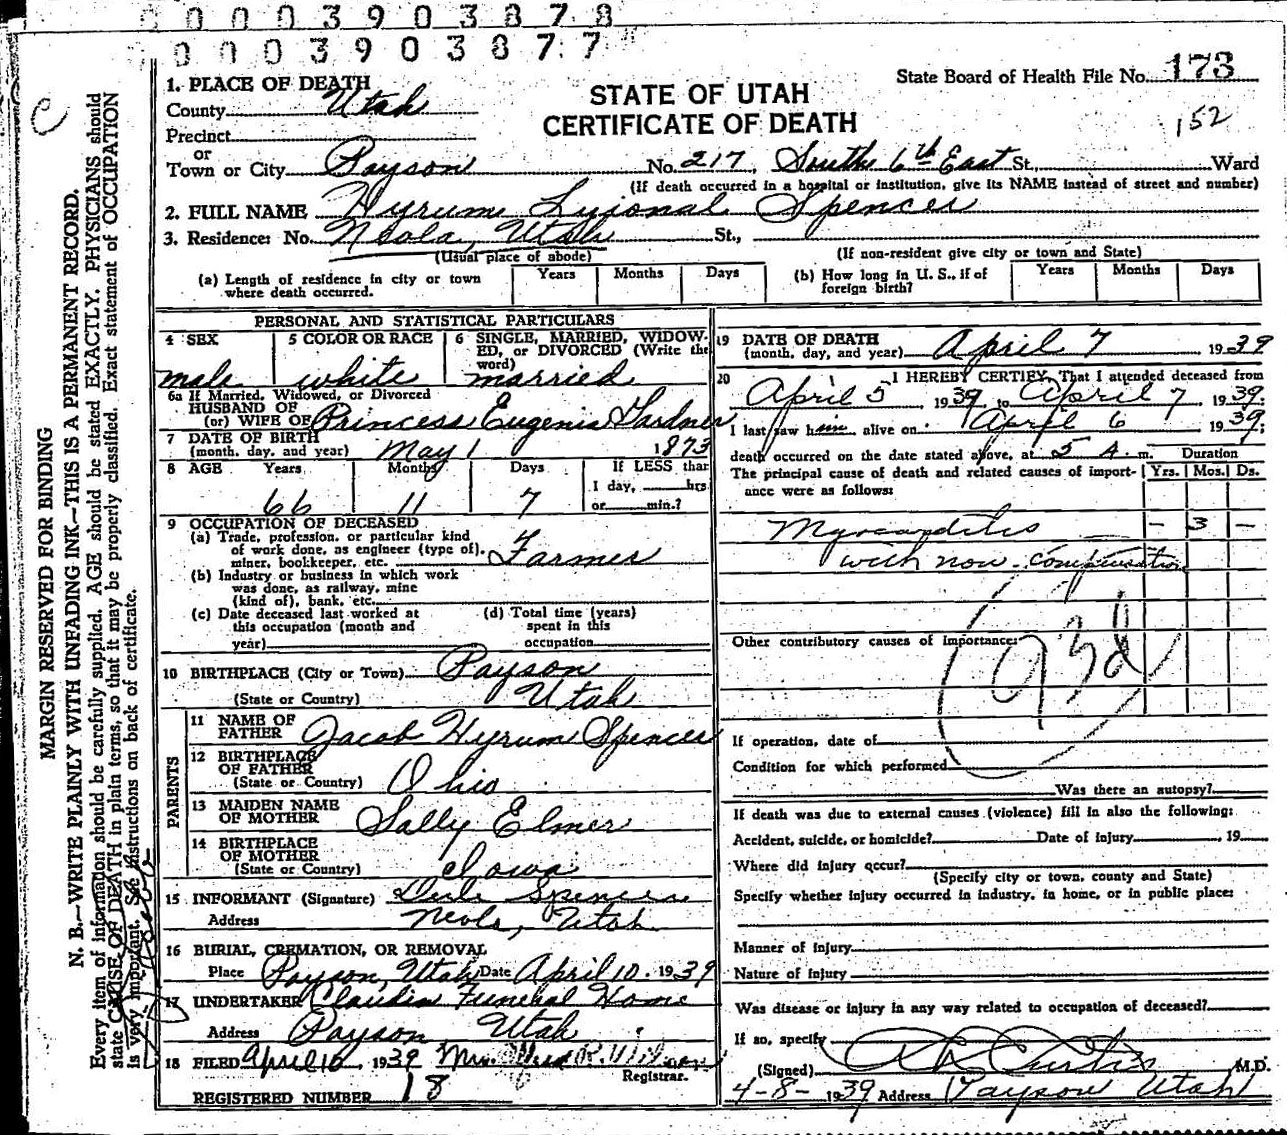 0 0 0 3 9 0 3 8 7 8
0 0 0 3 9 0 3 8 7 7
State Board of Health File No. 173
152
STATE OF UTAH
CERTIFICATE OF DEATH
1. PLACE OF DEATH
County Utah
Precinct
or
Town or City Payson No. 217, South 6th East St., Ward
(If death occurred in a hospital or institution, give its NAME instead of street and number)
2. FULL NAME Hyrum Lyional Spencer
3. Residence: No. Neola, Utah St.,
(Usual place of abode) (If non-resident give city or town and State)
(a) Length of residence in city or town where death occurred. Years Months Days (b) How long in U. S., if of foreign birth? Years Months Days
PERSONAL AND STATISTICAL PARTICULARS
4 SEX
male
5 COLOR OR RACE
white
6 SINGLE, MARRIED, WIDOW-
ED, or DIVORCED (Write the
word)
married
6a If Married, Widowed, or Divorced
HUSBAND OF
(or) WIFE OF Princess Eugenia Gardner
7 DATE OF BIRTH
(month, day, and year) May 1 1873
8 AGE Years Months Days If LESS than
66 11 7
1 day, hrs
or min.?
9 OCCUPATION OF DECEASED
(a) Trade, profession, or particular kind
of work done, as engineer (type of),
miner, bookkeeper, etc. Farmer
(b) Industry or business in which work
was done, as railway, mine
(kind of), bank, etc.
(c) Date deceased last worked at
this occupation (month and
year)
(d) Total time (years)
spent in this
occupation
10 BIRTHPLACE (City or Town) Payson
(State or Country) Utah
PARENTS
11 NAME OF
FATHER Jacob Hyrum Spencer
12 BIRTHPLACE
OF FATHER
(State or Country) Ohio
13 MAIDEN NAME
OF MOTHER Sally Elmer
14 BIRTHPLACE
OF MOTHER
(State or Country) Iowa
15 INFORMANT (Signature) Spencer
Address Neola, Utah
16 BURIAL, CREMATION, OR REMOVAL
Place Payson, Utah Date April 10. 1939
17 UNDERTAKER Claudin Funeral Home
Address Payson Utah
18 FILED April 10, 1939 Mrs.
Registrar.
REGISTERED NUMBER 18
19 DATE OF DEATH
(month, day, and year) April 7 1939
20 I HEREBY CERTIFY, That I attended deceased from
April 5 1939 to April 7 1939;
I last saw him alive on April 6 1939;
death occurred on the date stated above, at 5 A. m. Duration
The principal cause of death and related causes of import-
ance were as follows: Yrs. Mos. Ds.
Myocarditis – 3 –
with non-compensation
Other contributory causes of importance:
93d
If operation, date of
Condition for which performed
Was there an autopsy?
If death was due to external causes (violence) fill in also the following:
Accident, suicide, or homicide? Date of injury , 19
Where did injury occur?
(Specify city or town, county and State)
Specify whether injury occurred in industry, in home, or in public place:
Manner of Injury
Nature of Injury
Was disease or injury in any way related to occupation of deceased?
If so, specify
(Signed) Curtis M.D.
4-8-1939 Address Payson Utah
MARGIN RESERVED FOR BINDING
N. B.—WRITE PLAINLY WITH UNFADING INK—THIS IS A PERMANENT RECORD.
Every item of information should be carefully supplied. AGE should be stated EXACTLY. PHYSICIANS should
state CAUSE OF DEATH in plain terms, so that it may be properly classified. Exact statement of OCCUPATION
is very important. See instructions on back of certificate.